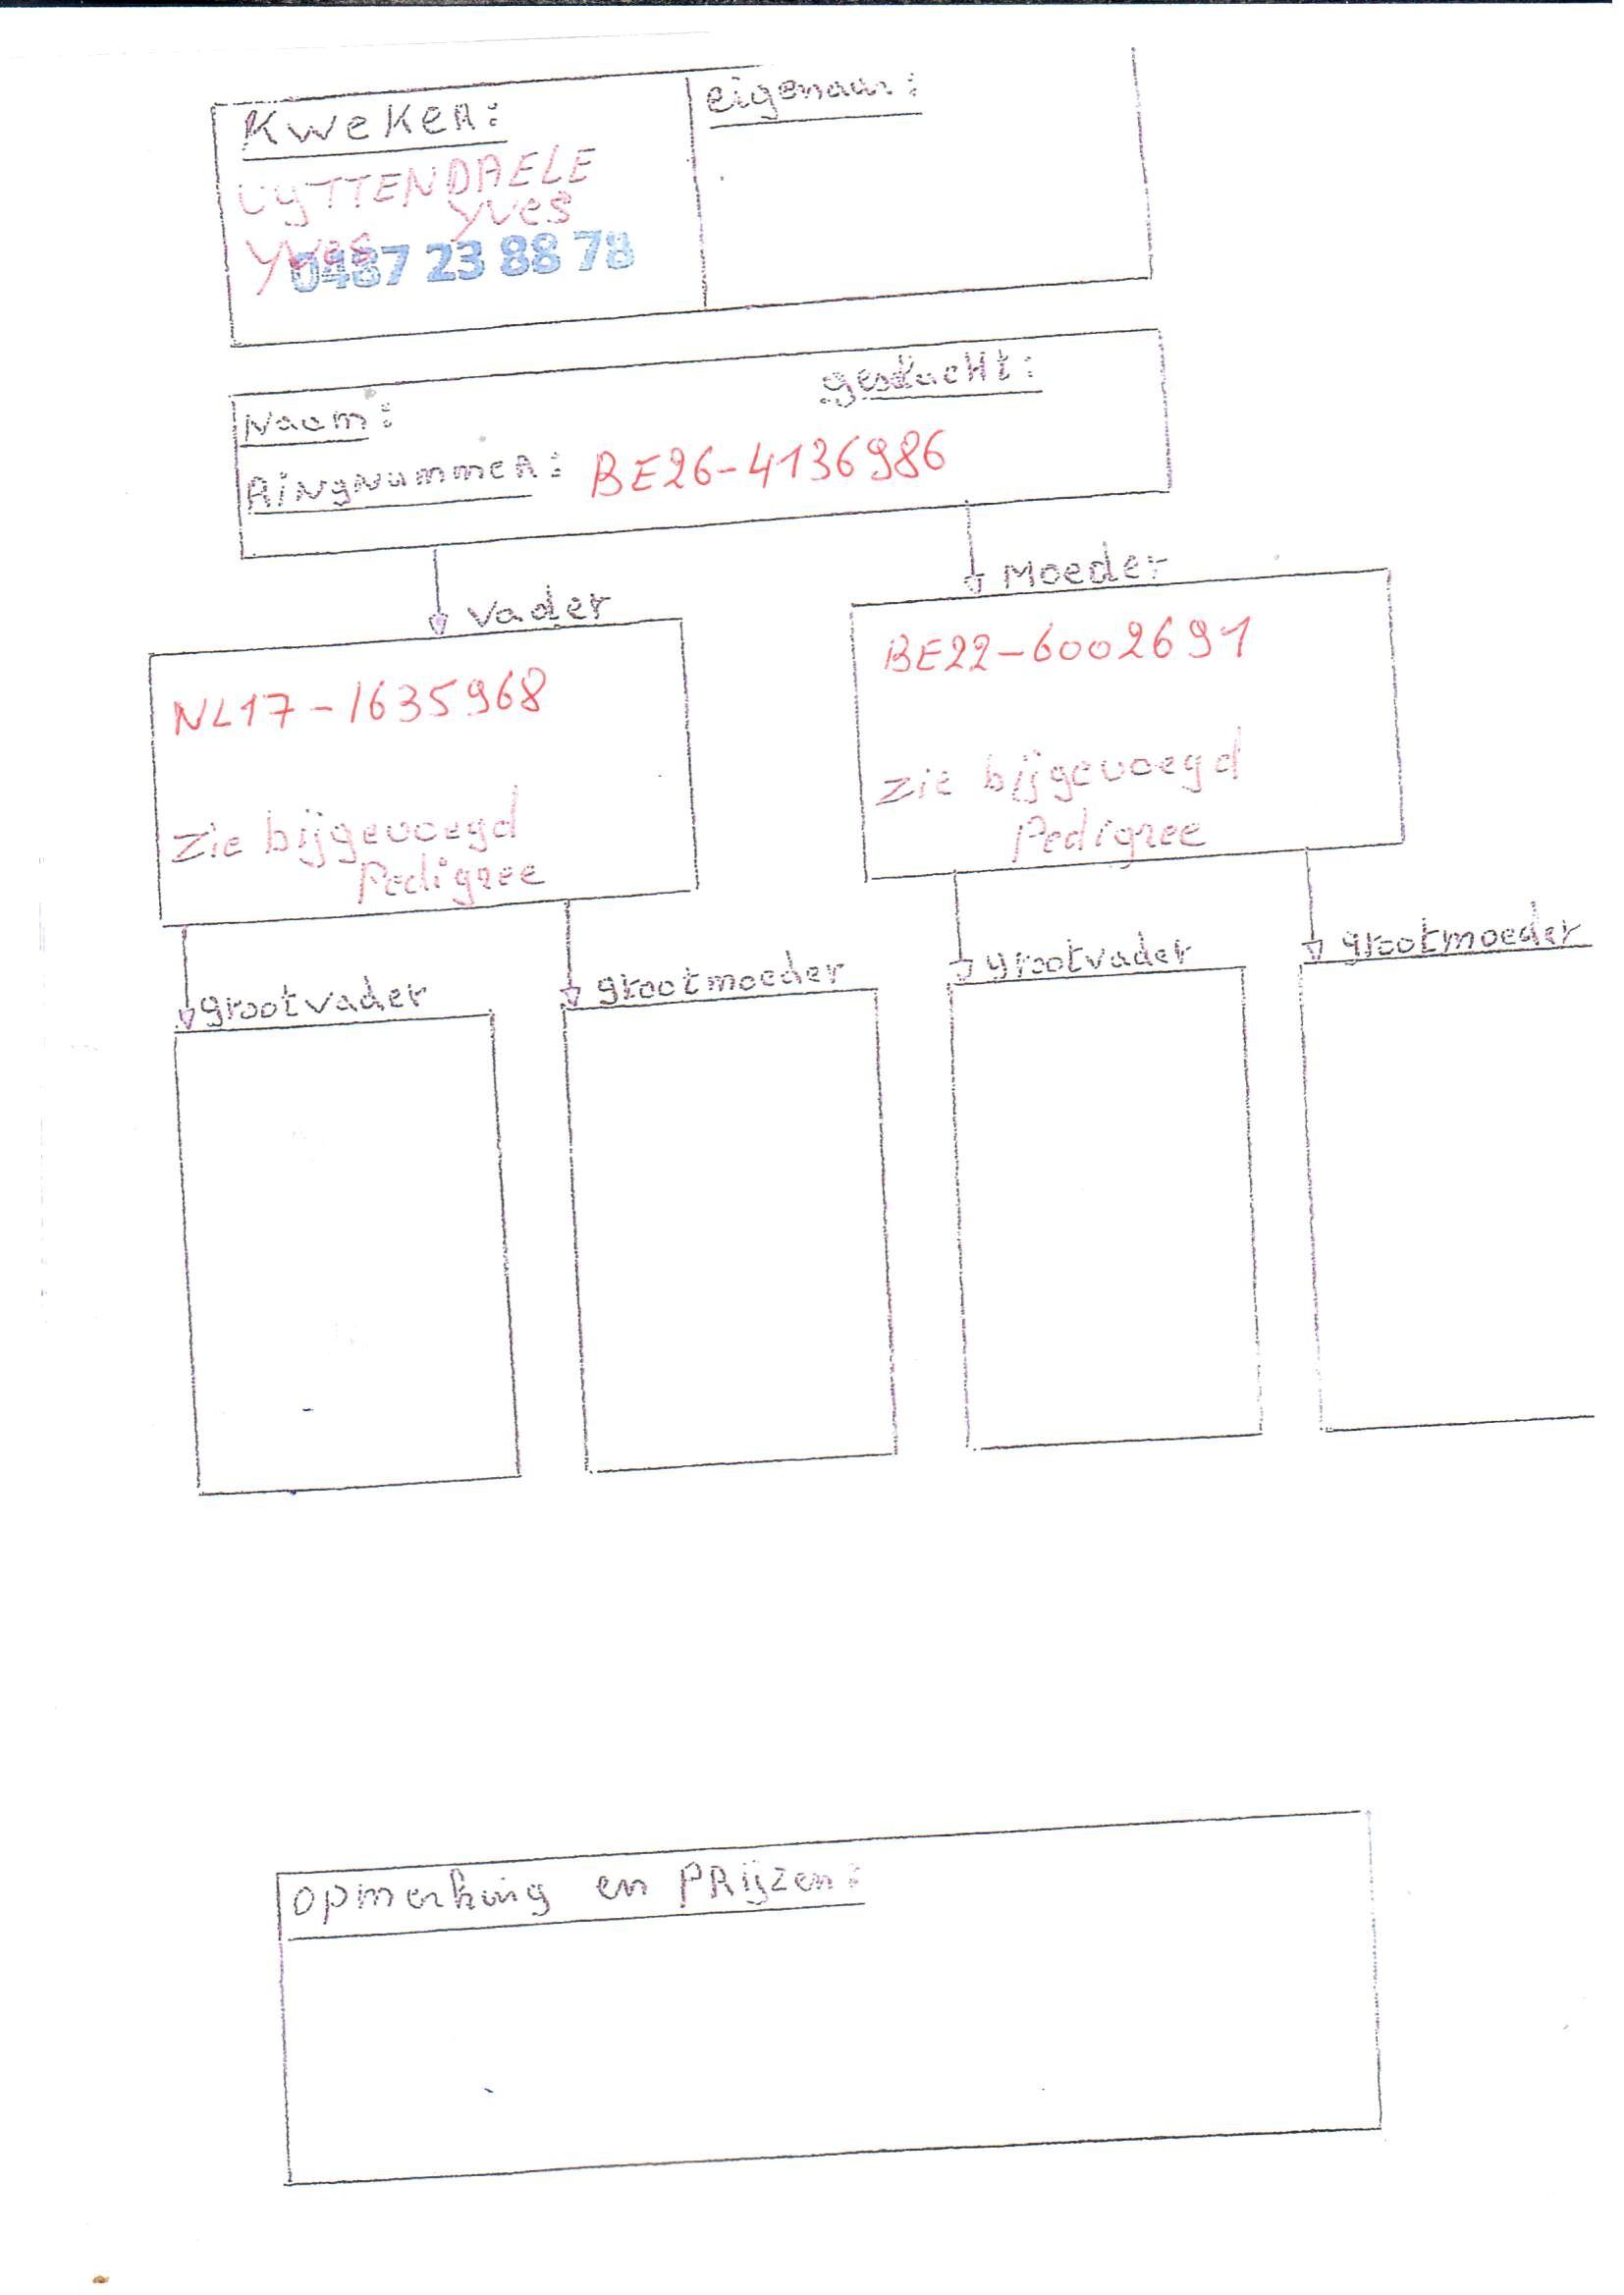 Kweker:
eigenaar:
UYTTENDAELE
Yves
Yves
0487 23 88 78
geslacht:
Naam:
Ringnummer: BE26-4136986
Vader
Moeder
NL17-1635968
BE22-6002691
Zie bijgevoegd
Pedigree
Zie bijgevoegd
Pedigree
grootvader
grootmoeder
grootvader
grootmoeder
opmerking en PRijzen: